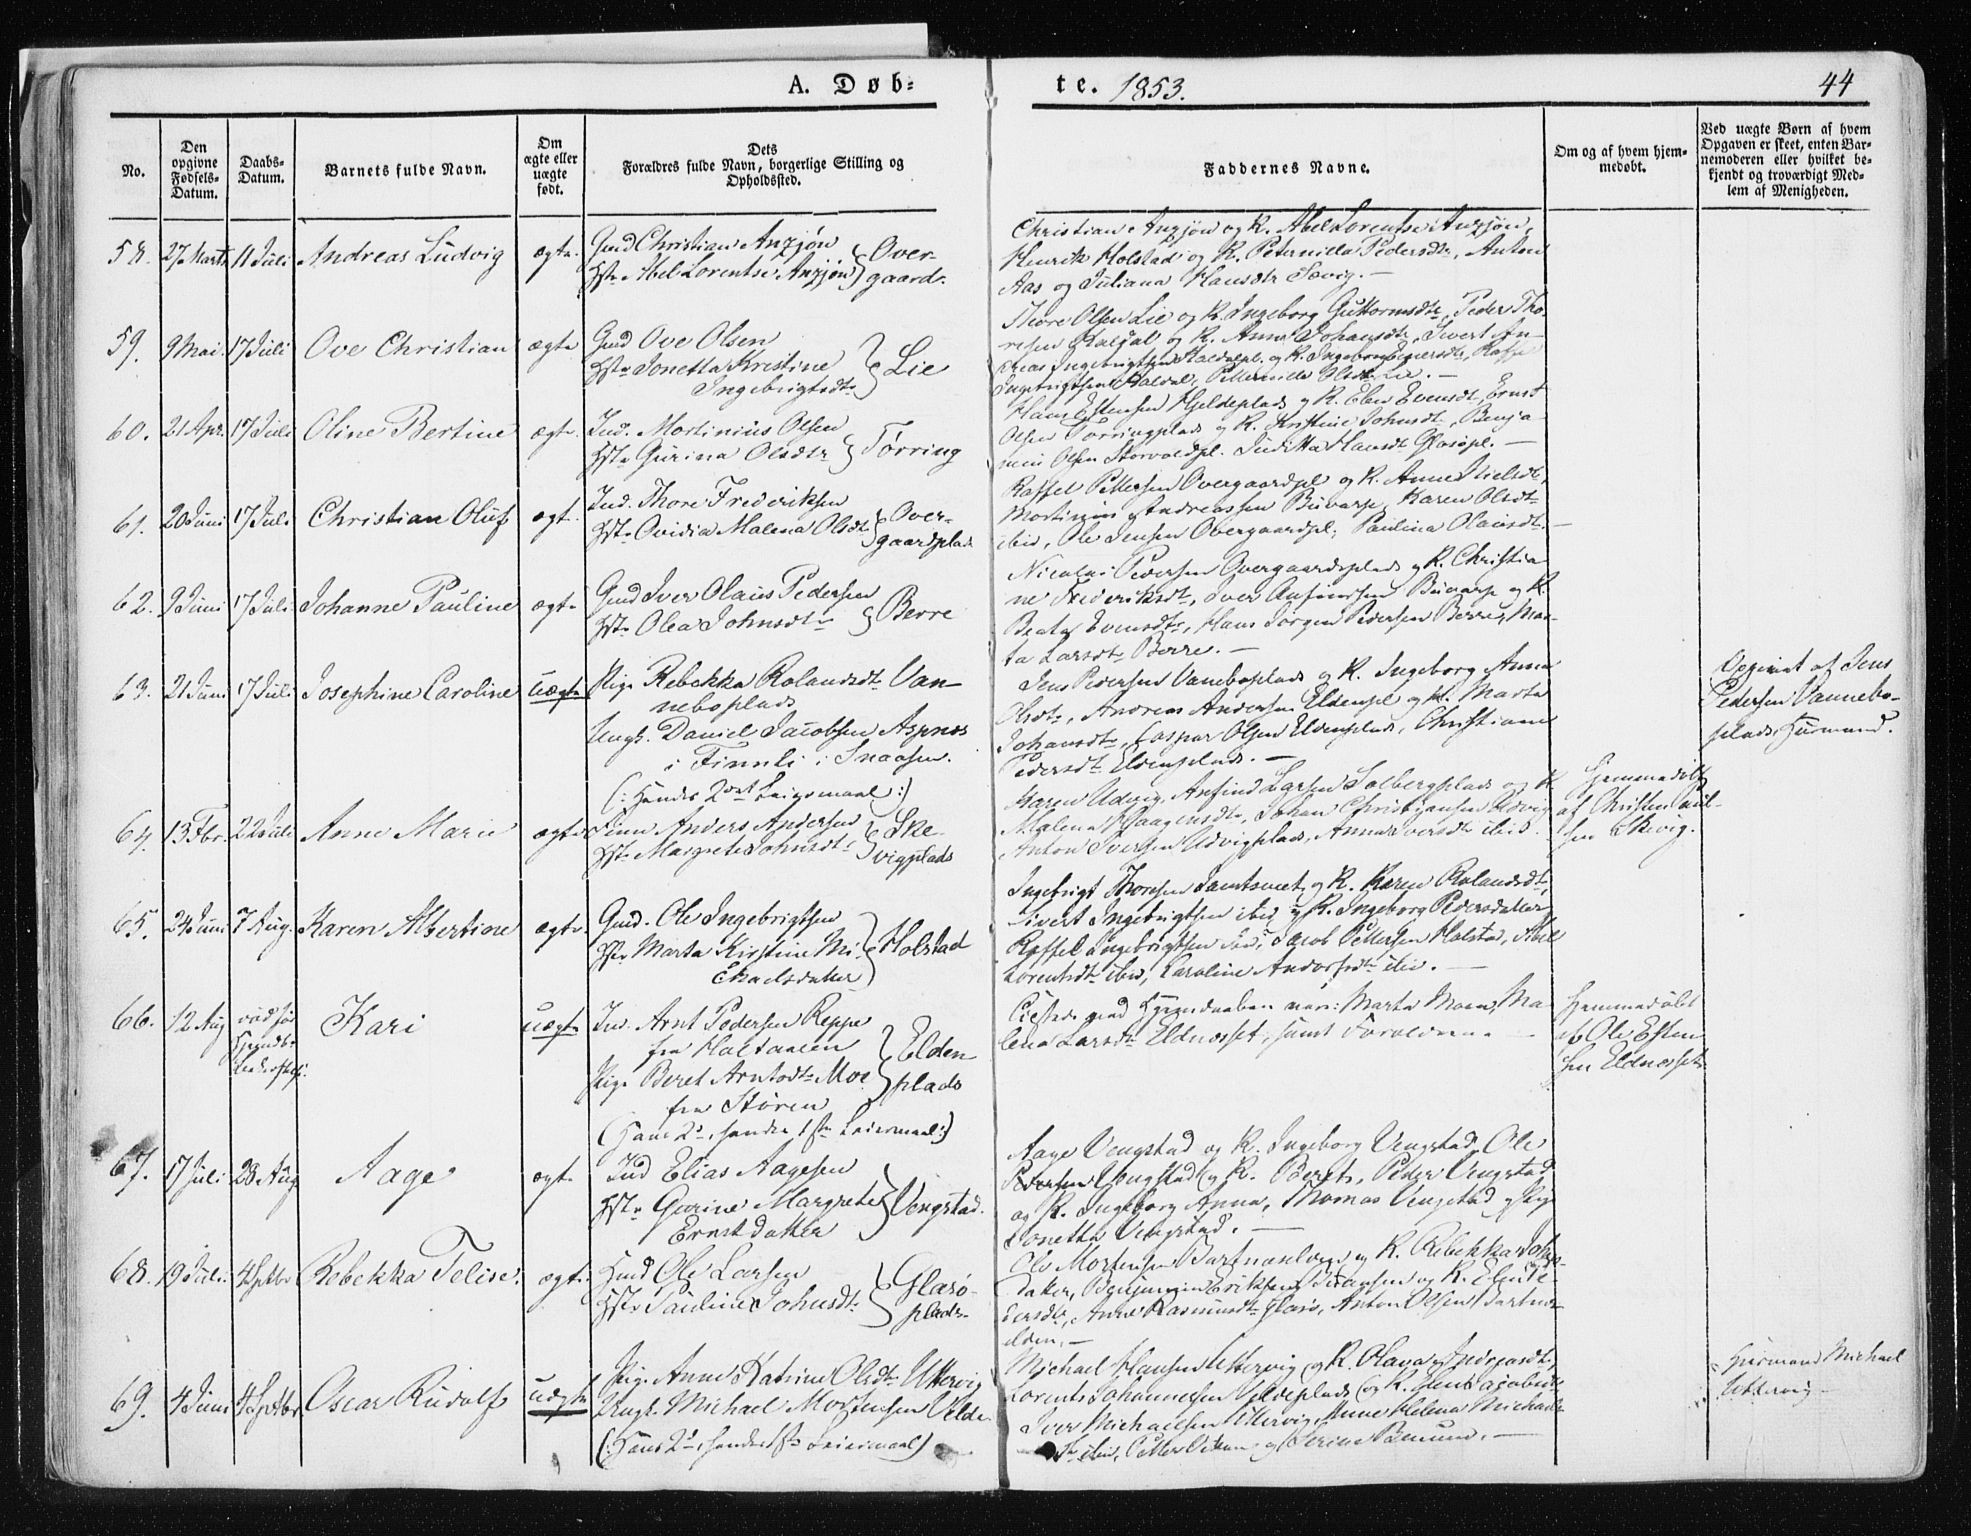 A. Døbte. 1853.
44
No.
Den opgivne Fødsels-Datum.
Daabs-Datum.
Barnets fulde Navn.
Om ægte eller uægte født.
Dets Forældres fulde Navn, borgerlige Stilling og Opholdssted.
Faddernes Navne.
Om og af hvem hjemmedøbt.
Ved uægte Børn af hvem Opgaven er skeet, enten Barnemoderen eller hvilket bekjendt og troværdigt Medlem af Menigheden.
58. 27 Marts 11 Juli Andreas Ludvig ægte
Gmd Christian Anzjøn
Hst. Abel Lorentse Anzjøn
Overgaard.
Christian Anzjøn og K. Abel Lorentse Anzjøn,
Henrik Holstad og K. Peternilla Pedersdtr, Anton
Aas og Juliana Hansdtr Sævig. —
59. 9 Mai. 17 Juli Ove Christian ægte
Gmd Ove Olsen
Hst. Jonetta Kristine
Ingebrigtsdtr
Lie
Thore Olsen Lie og K. Ingeborg Guttormsdtr, Peder Tho-
resen Haldal og K. Anne Johansdtr, Sivert An-
dreas Ingebrigtsen Haldalpl. og K. Ingeborg
Ingebrigtsen Haldal, Petternille Olsdtr Lie. —
60. 21 Apr. 17 Juli Oline Bertine ægte
Ind. Mortinius Olsen
Hst. Gurina Olsdtr
Tørring
Hans Estensen Hjeldeplads og K. Elen Evensdt, Ernst
Olsen Tørringplads og K. Kristine Johnsdt, Benja-
min Olsen Storvoldpl. Juditta Hansdt Glasøpl. —
61. 20 Juni 17 Juli Christian Oluf ægt.
Ind. Thore Frederiksen
Hst. Ovidia Malena Olsdt
Overgaardplads
Raffel Pettersen Overgaardpl og K. Anne Nielsdt,
Mortinus Andreassen Buvarp, Karen Olsdt
ibid, Ole Jensen Overgaardpl, Paulina Olausdt. —
62. 9 Juni 17 Juli Johanne Pauline ægte
Gmd Iver Olaus Pedersen
Hst. Olea Johnsdtr
Berre
Nicolai Pedersen Overgaardsplads og K. Christia-
ne Frederiksdt, Iver Anfindsen Buvarp og K.
Beata Evensdtr, Hans Jørgen Pedersen Berre, Mar-
ta Larsdt Berre. —
63. 21 Juni 17 Juli Josephine Caroline uægte
Pige Rebekka Rolandsdt Van-
neboplads
Ungk. Daniel Jacobsen Aspnes
i Finnli i Snaasen.
(: Hendes 2det Leiermaal :)
Jens Pedersen Vaneboplads og K. Ingeborg Anna
Olsdt, Andreas Andersen Eldenpl og K. Marta
Johansdt, Caspar Olsen Eldenplads, Christiane
Pedersdt Eldenplads. —
Opgivet af Jens
Pedersen Vannebo-
plads, Huusmand.
64. 13 Fbr. 22 Juli Anne Marie ægte
Anders Andersen
Hst. Margrete Johnsdt
Skevigplads
Karen Udvig, Anfind Larsen Solbergplads og K
Malena Haagensdt, Johan Christiansen Udvig
Anton Iversen Udvigplads, Anna Iversdt ibid.
Hjemmedøbt
af Christen Niel-
sen Skevig.
65. 24 Juni 7 Aug. Karen Albertine ægte
Gmd. Ole Ingebrigtsen
Hst. Marta Kirstine Mi-
kaelsdatter
Holstad
Ingebrigt Thoresen Samtsmet og K. Karen Rolandsdt,
Sivert Ingebrigtsen ibid og K. Ingeborg Pedersdatter
Raffel Ingebrigtsen ibid, Jacob Pettersen Holstad, Abel
Lorentsdt ibid, Caroline Andersdt ibid. —
66. 12 Aug Kari uægte
Ind. Arnt Pedersen Reppe
fra Holtaalen
Pige Beret Arntsdtr Moe
fra Støren
(Hans 2d, hendes 1ste Leiermaal:)
Eldenplads
Marta Moen, Ma-
lena Larsdt Eldnesset, samt Forældrene. —
Hjemmedøbt
af Ole Esten-
sen Eldnesset.
67. 17 Juli 28 Aug Aage ægte
Ind Elias Aagesen
Hst. Gurine Margrete
Ernstdatter
Vengstad.
Aage Vengstad og K. Ingeborg Vengstad, Ole
Pedersen Vengstad og K. Beret, Peder Vengstad
og K. Ingeborg Anna, Thomas Vengstad og Pige
Jonetta Vengstad. —
68. 19 Juli 4 Sptbr Rebekka Felise. ægte
Ole Larsen
Hst. Pauline Johnsdt
Glasøplads.
Ole Mortensen Bartnesvoge og K. Rebekka Johns-
datter, Benjamin Eriksen og K. Elen Pe-
dersdt, Anne Rasmusdt Glasø, Anton Olsen Bartnes-
elden. —
69. 4 Juni 4 Sptbr Oscar Rudolf uægte
Pige Anne Katrine Olsdt Uttervig
Ungk. Michael Mortensen Velde.
(: Hans 2d, hendes 1ste Leiermaal)
Michael Hansen Uttervig og K. Olava Andreasdt,
Lorents Johannesen Veldeplads og K. Elen Jacobsdt
Iver Michaelsen Uttervig, Anne Helena Michaels-
dtr ibid, Petter og Serine —
Huusmand Michael
Uttervig.